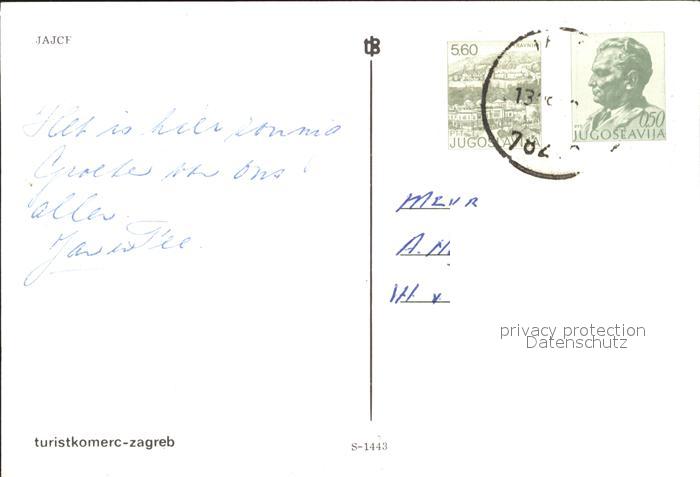 JAJCE
tB
5.60
TRAVNIK
JUGOSLAVIJA
0.50
JUGOSLAVIJA
13
Het is hier zonnig
Groeten van ons
allen.
Jan en
MEVR
A.M.
privacy protection
Datenschutz
turistkomerc-zagreb
S-1443